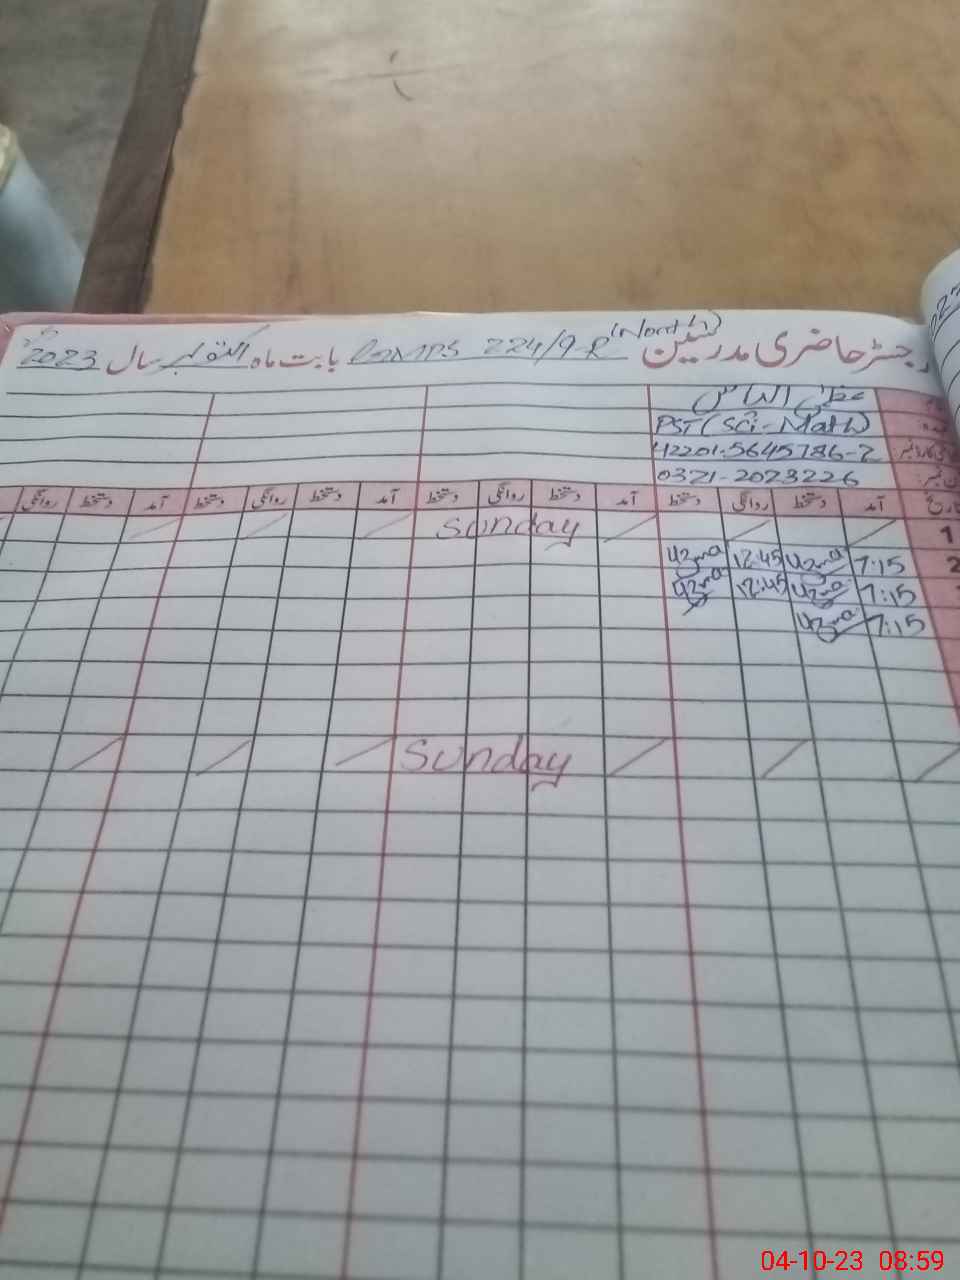 رجسٹر حاضری مدرسین GGMPS 224/9-R (North) بابت ماہ اکتوبر سال 2023
عظمیٰ الماس
PST (Sci-Math)
42201-5645786-2
0321-2023226
آمد دستخط روانگی دستخط آمد دستخط روانگی دستخط آمد دستخط روانگی دستخط آمد دستخط روانگی
1 Sunday
2 7:15 Uzma 12:45 Uzma
7:15 Uzma 12:45 Uzma
7:15 Uzma
Sunday
04-10-23 08:59